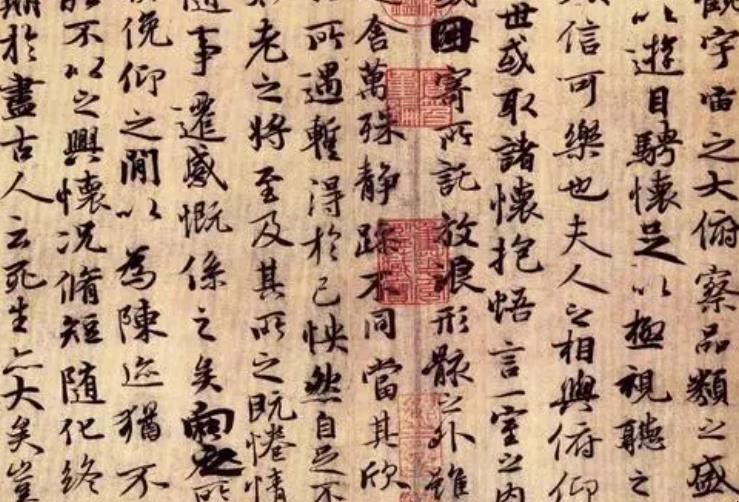 觀宇宙之大俯察品類之盛
以遊目騁懷足以極視聽之
娛信可樂也夫人之相與俯仰
世或取諸懷抱悟言一室之內
或因寄所託放浪形骸之外雖
舍萬殊靜躁不同當其欣
所遇暫得於己怏然自足不
老之將至及其所之既惓情
隨事遷感慨係之矣向之所
俛仰之閒以為陳迹猶不
能不以之興懷況脩短隨化終
期於盡古人云死生亦大矣豈